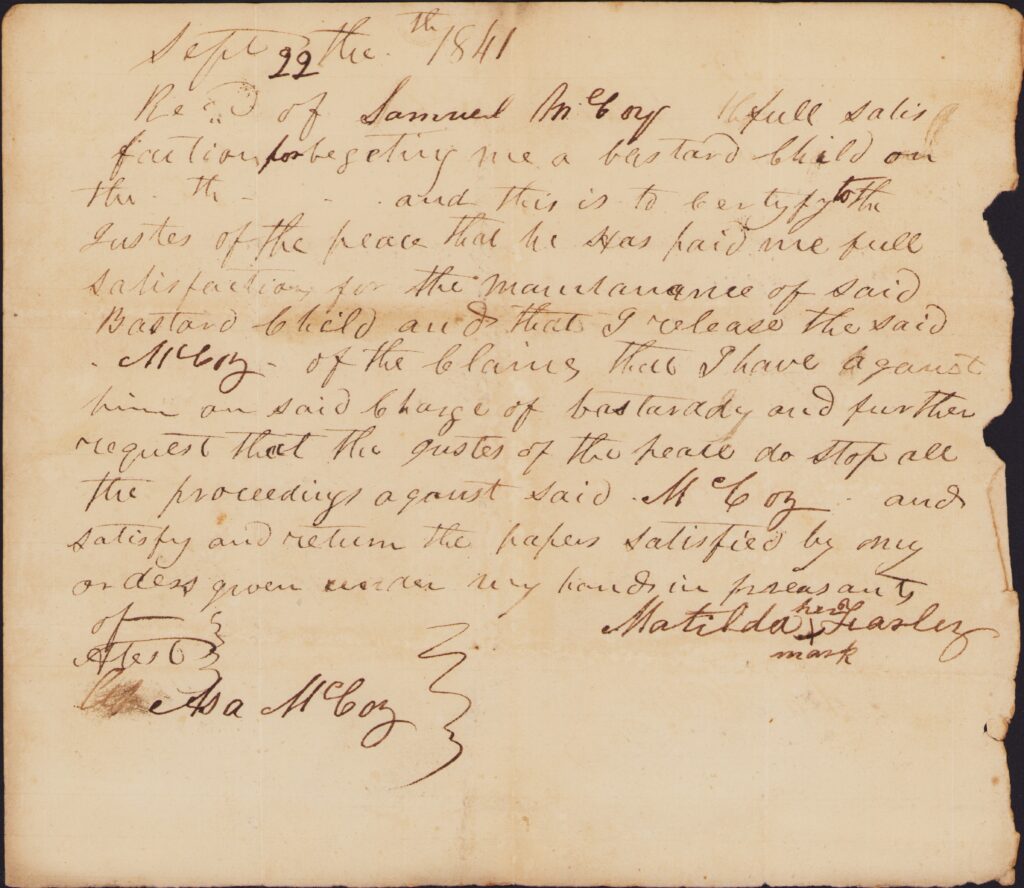 Sept 22 the th 1841
Recd of Samuel McCoy full satis
faction for begeting me a bastard Child on
the th - - and this is to certyfy to the
gustes of the peace that he Has paid me full
satisfaction for the maintanance of said
Bastard Child and that I release the said
McCoy - of the Claime that I have aganst
him on said Charge of bastardy and further
request that the gustes of the peace do stop all
the proceedings aganst said McCoy and
satisfy and return the papers satisfied by my
orders given under my hand in preasants
of
Matilda her x mark
Atest
Asa McCoy